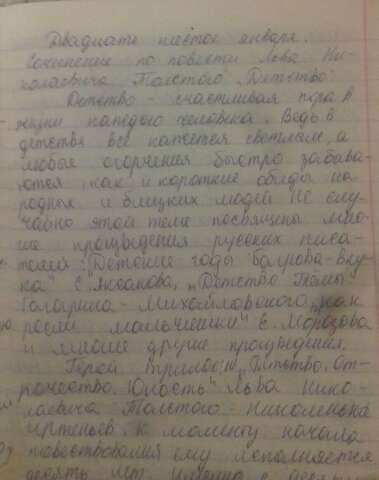 Двадцать шестое января.
Сочинение по повести Льва Ни-
колаевича Толстого „Детство".
Детство - счастливая пора в
жизни каждого человека. Ведь в
детстве всё кажется светлым, а
любые огорчения быстро забыва-
ются, как и короткие обиды на
родных и близких людей. Не слу-
чайно этой теме посвящены мно-
гие произведения русских писа-
телей: „Детские годы Багрова-вну-
ка" С. Аксакова, „Детство Тёмы"
Гагарина - Михайловского, „как
росли мальчишки" Е. Морозова
и многие другие произведения.
Герой трилогии „Детство. От-
рочество. Юность" Льва Нико-
лаевича Толстого - Николенька
Иртеньев. К моменту начала
повествования ему исполняется
десять лет. Именно с десяти